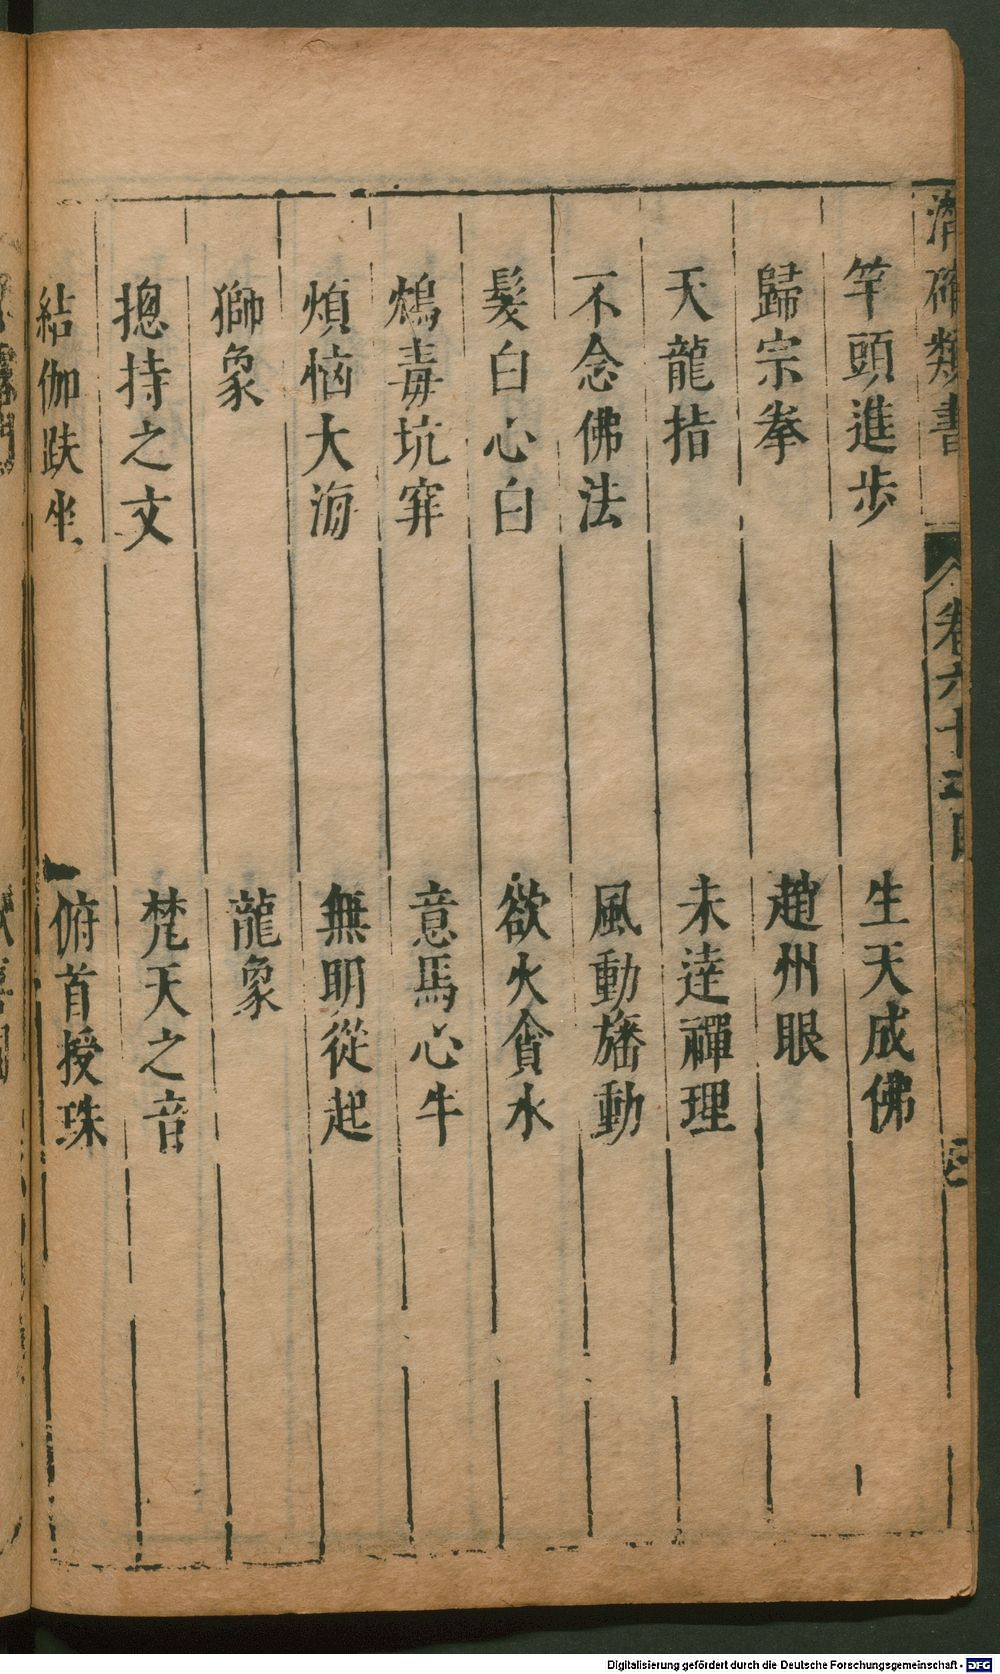 潛確類書
卷六十
竿頭進步
生天成佛
歸宗拳
趙州眼
天龍指
未逹禪理
不念佛法
風動旛動
髮白心白
欲火貪水
鴆毒坑穽
意馬心牛
煩惱大海
無明從起
獅象
龍象
摠持之文
梵天之音
結伽趺坐
俯首授珠
Digitalisierung gefördert durch die Deutsche Forschungsgemeinschaft - DFG